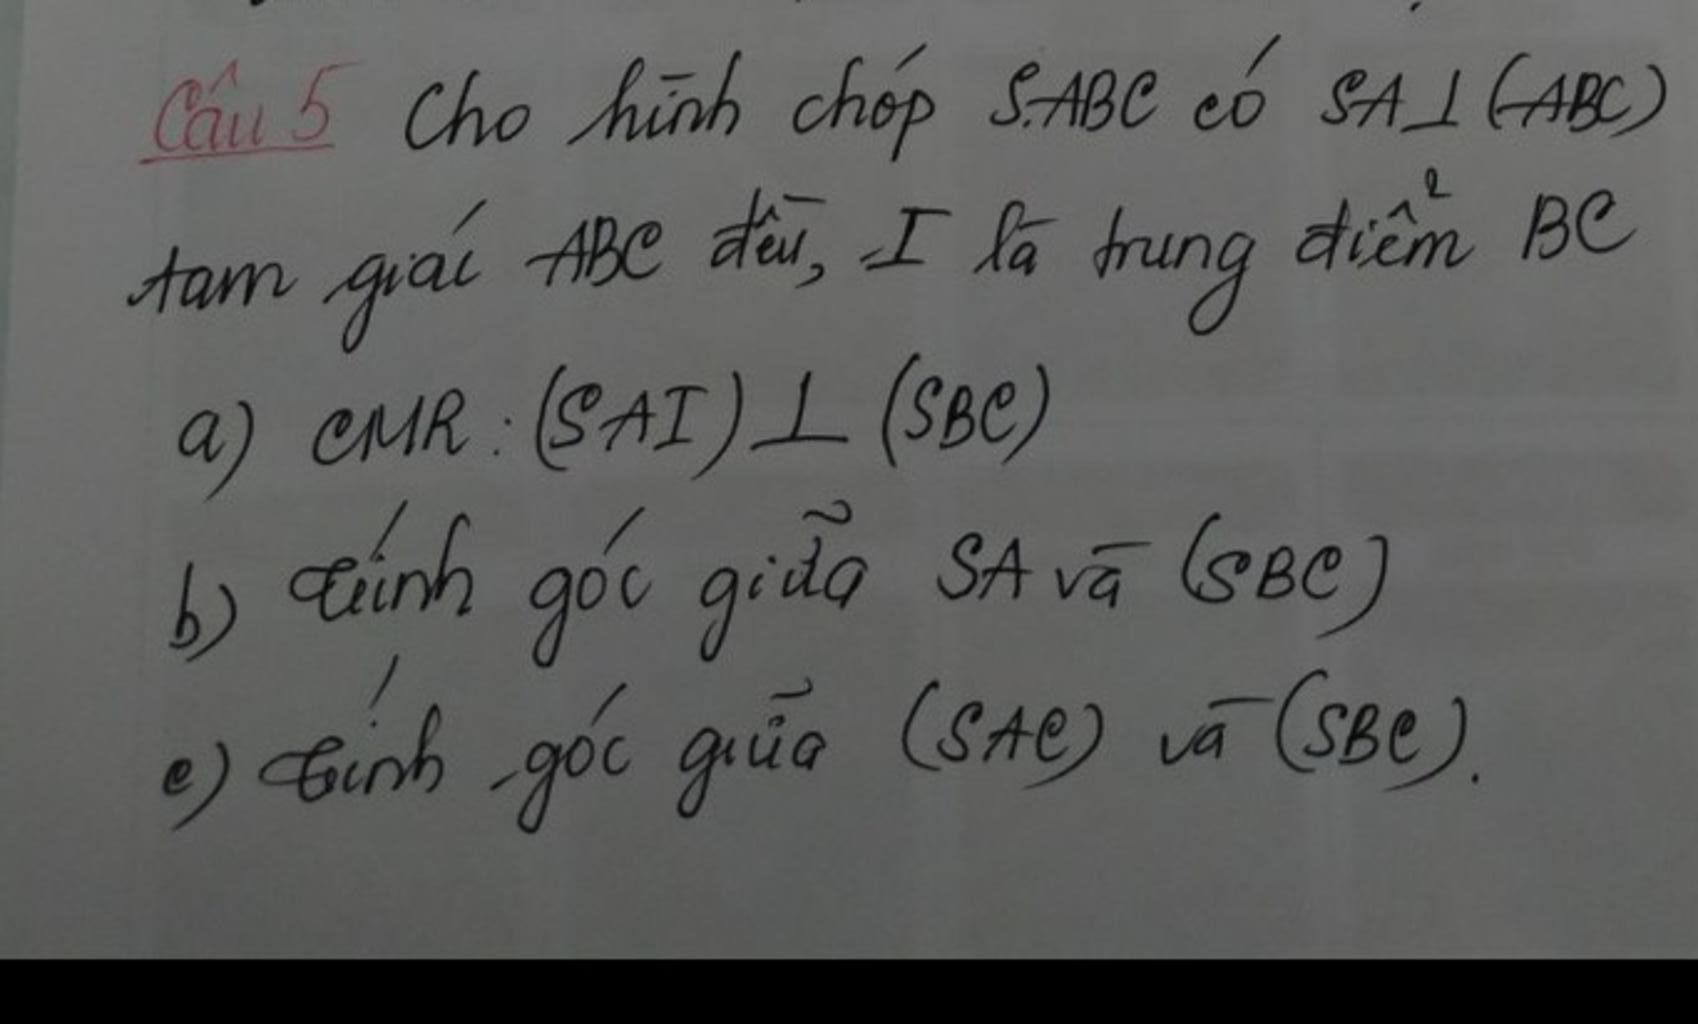 Câu 5 Cho hình chóp S.ABC có SA⊥(ABC)
tam giác ABC đều, I là trung điểm BC
a) CMR: (SAI)⊥(SBC)
b) Tính góc giữa SA và (SBC)
c) Tính góc giữa (SAC) và (SBC).